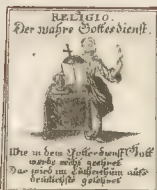 RELIGIO.
Der wahre Gottesdienst.
Wie in dem Gottesdienst Gott
werde recht geehret
Das wird im Lutherthum aufs
deutlichste gelehret